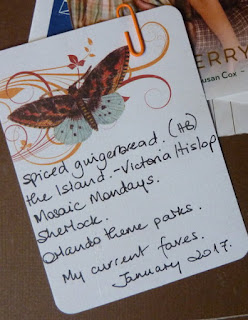 ERRY
usan Cox
Spiced gingerbread. (AB)
the Island.-Victoria Hislop
Mosaic Mondays.
Sherlock.
Orlando theme parks.
My current faves.
January 2017.